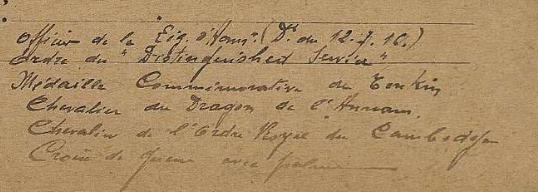 Officier de la "Lég. d'Honr" (D. du 12.7.16.)
Ordre du "Distinguished Service"
Médaille Commémorative du Tonkin
Chevalier du Dragon de l'Annam.
Chevalier de l'Ordre Royal du Cambodge
Croix de guerre avec palme